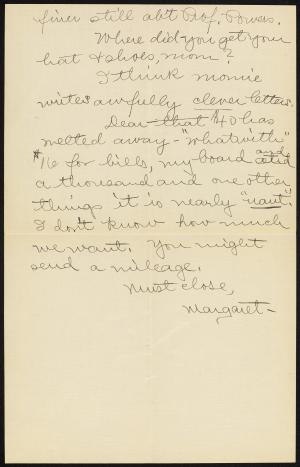 finer still abt Prof. Powers.
Where did you get your
hat & shoes, mom?
I think momie
writes awfully clever letters.
Dear – that $40 has
melted away – "whatwith"
$16 for bills, my board and
a thousand and one other
things it is nearly "naut".
I don't know how much
we want. You might
send a mileage.
Must close,
Margaret –